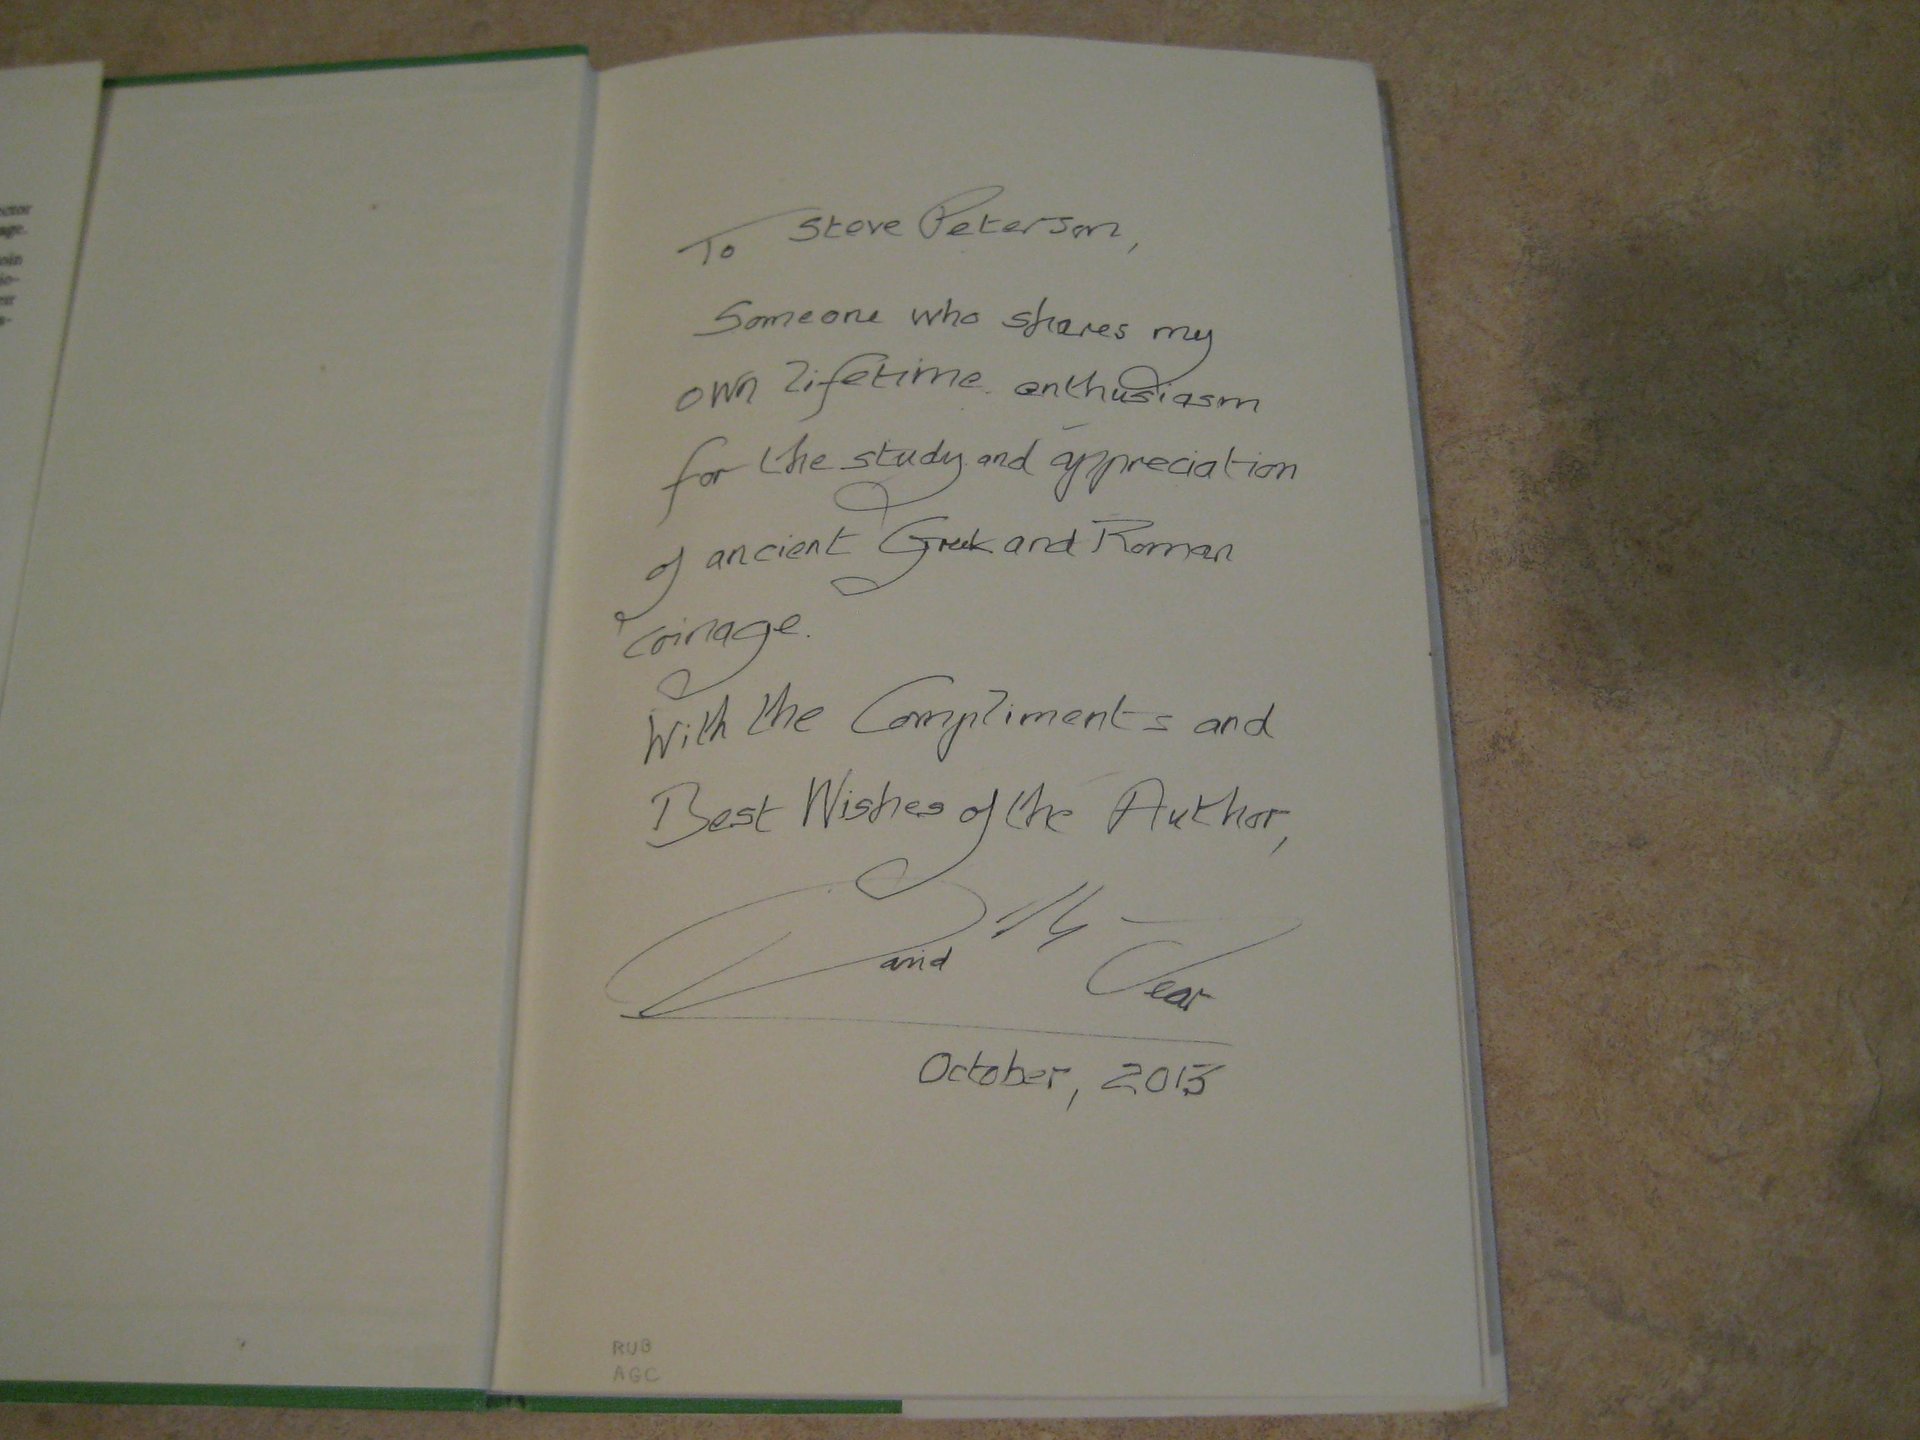 To Steve Peterson,
Someone who shares my
own lifetime enthusiasm
for the study and appreciation
of ancient Greek and Roman
coinage.
With the Compliments and
Best Wishes of the Author,
David Sear
October, 2013
RUB
AGC